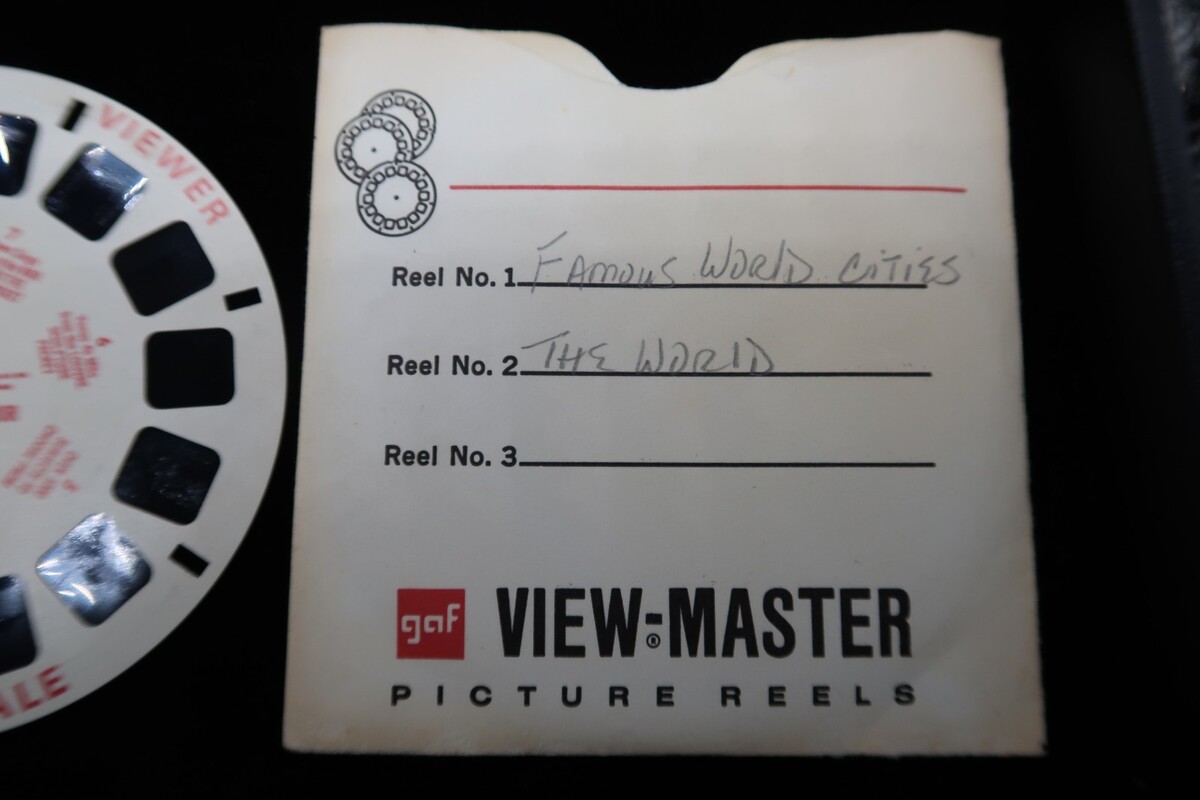 VIEWER
6
ALE
Reel No. 1 FAMOUS WORLD CITIES
Reel No. 2 THE WORLD
Reel No. 3
gaf VIEW-MASTER
®
PICTURE REELS